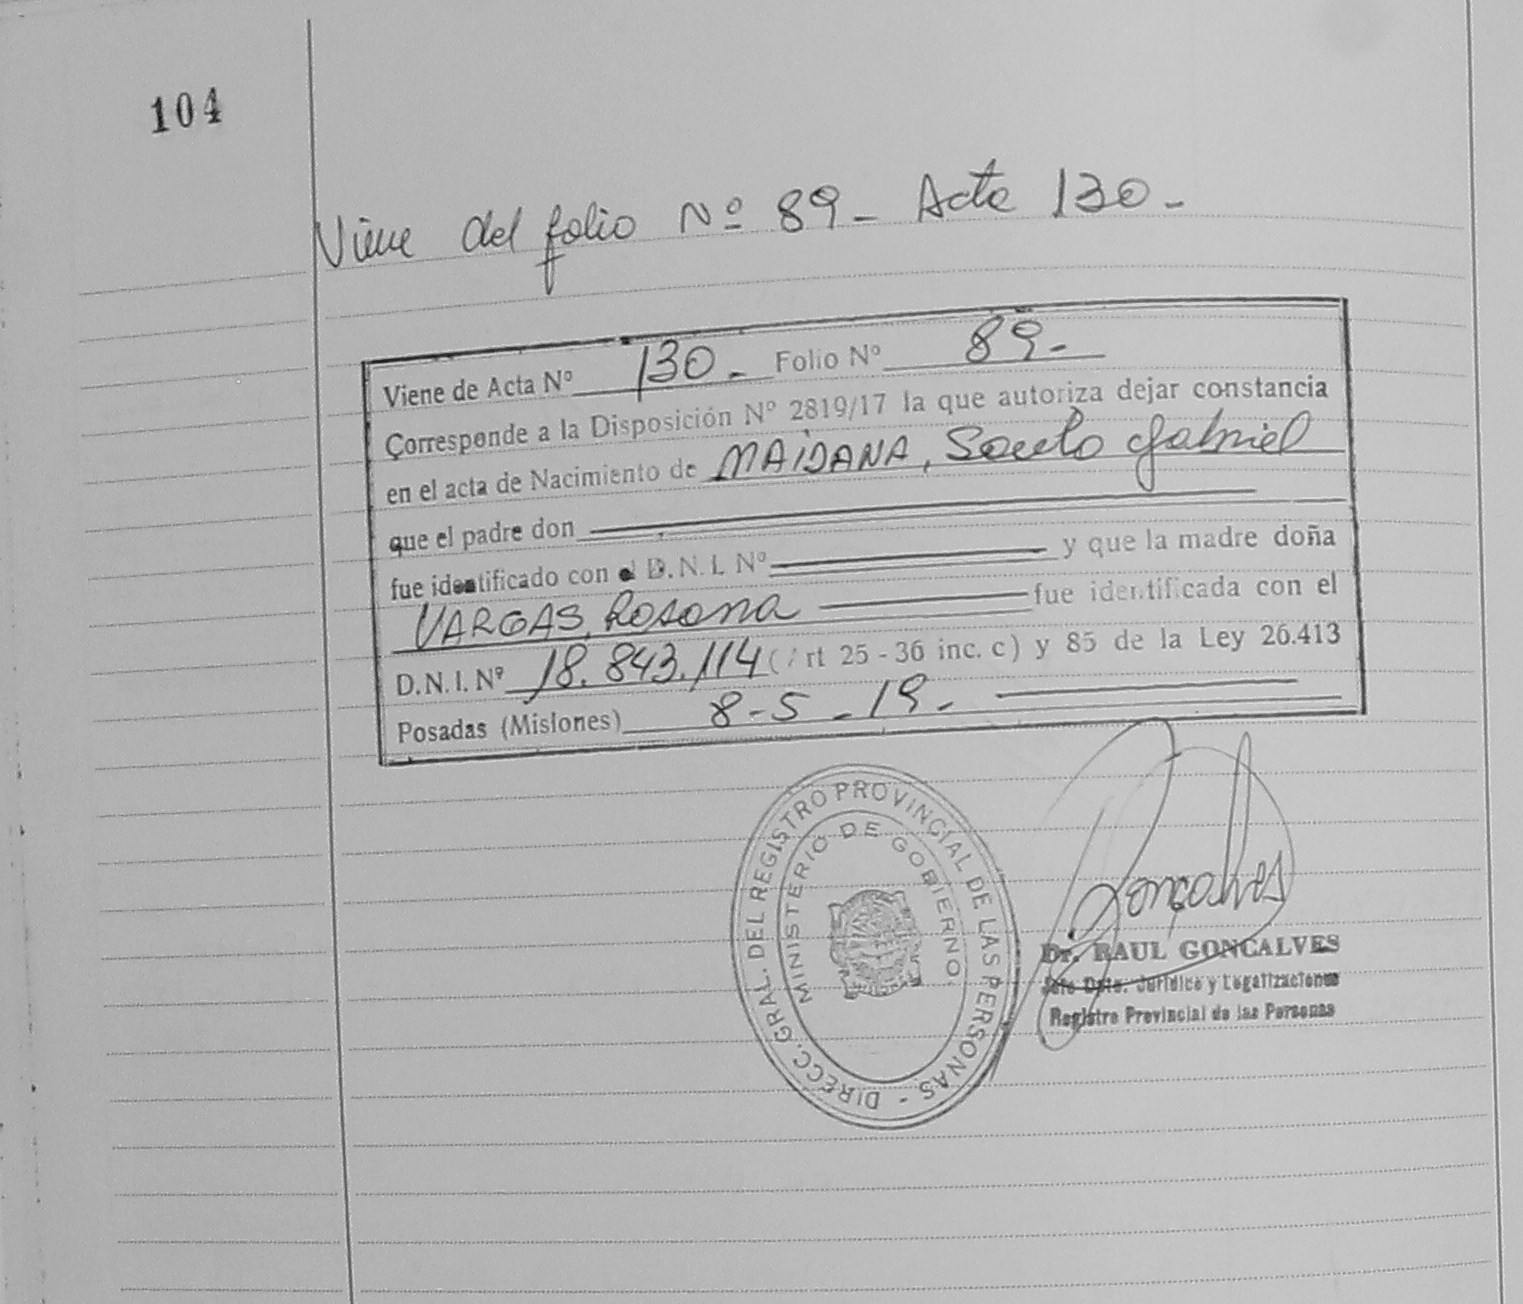 104
Viene del folio Nº 89- Acta 130.-
Viene de Acta Nº 130.- Folio Nº 89.-
Corresponde a la Disposición Nº 2819/17 la que autoriza dejar constancia
en el acta de Nacimiento de MAIDANA, Santo Gabriel
que el padre don
fue identificado con el D.N.I. Nº y que la madre doña
VARGAS, Rosana fue identificada con el
D.N.I. Nº 18.843.114 (Art 25 - 36 inc. c) y 85 de la Ley 26.413
Posadas (Misiones) 8-5-19.-
DIRECC. GRAL. DEL REGISTRO PROVINCIAL DE LAS PERSONAS -
MINISTERIO DE GOBIERNO
Gonçalves
Dr. RAUL GONCALVES
Jefe Dpto. Jurídico y Legalizaciones
Registro Provincial de las Personas